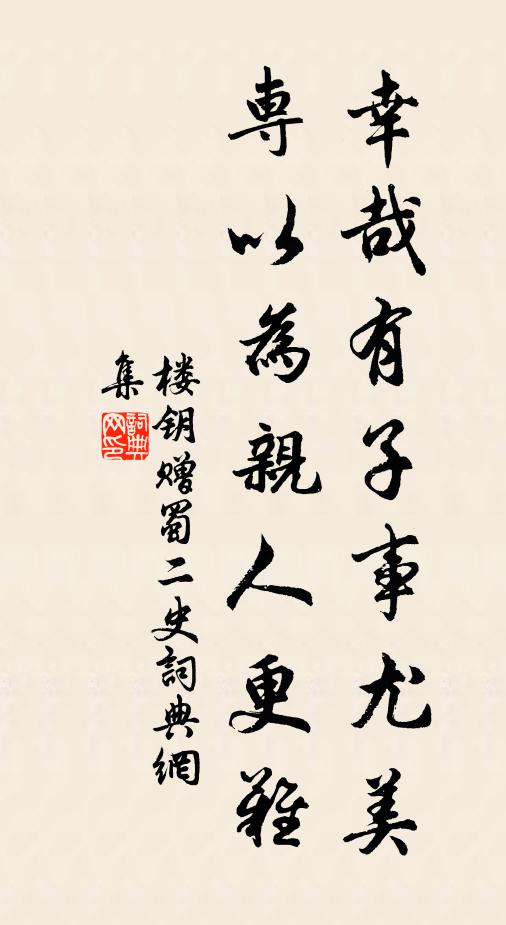 幸哉有子事尤美
専以為親人更難
楼钥赠蜀二史詞典網
集
詞典
网印